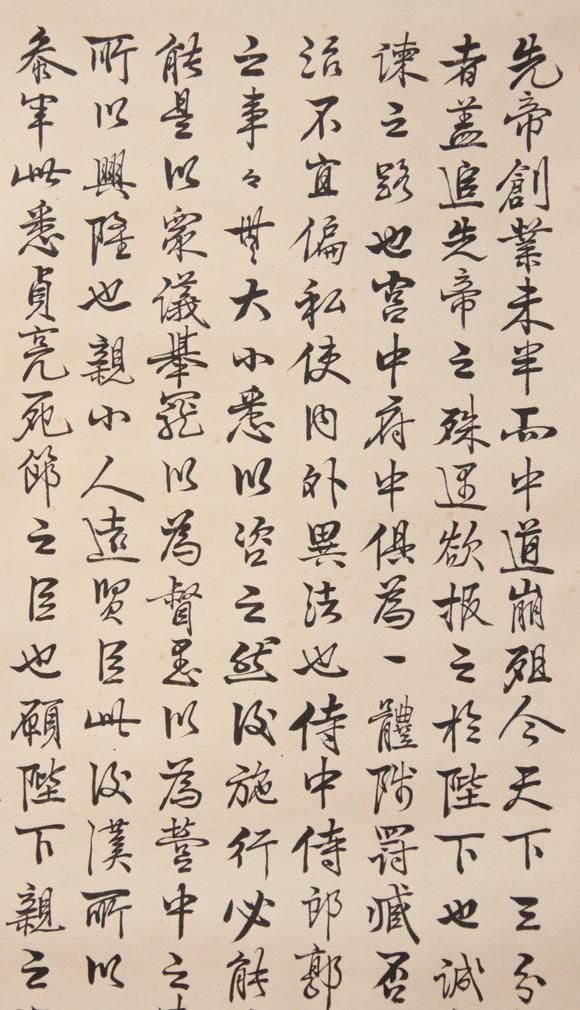 先帝創業未半而中道崩殂今天下三分
者蓋追先帝之殊遇欲報之於陛下也誠
諫之路也宮中府中俱為一體陟罰臧否
治不宜偏私使內外異法也侍中侍郎郭
之事々無大小悉以咨之然後施行必能
能是以眾議舉寵以為督愚以為營中之
所以興隆也親小人遠賢臣此後漢所以
參軍此悉貞亮死節之臣也願陛下親之